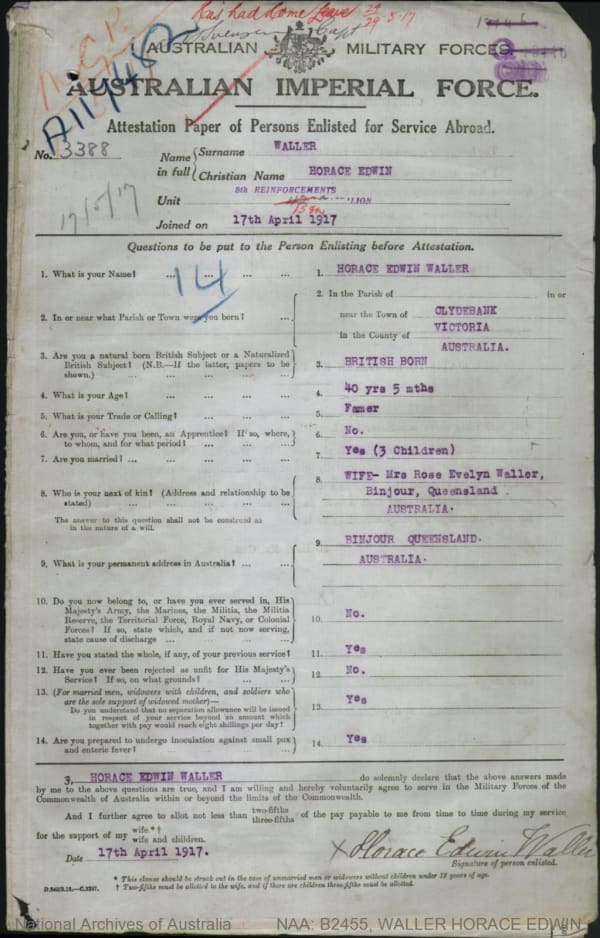 Has had Home Leave
29-5-17
Capt
AUSTRALIAN MILITARY FORCES.
AUSTRALIAN IMPERIAL FORCE.
Attestation Paper of Persons Enlisted for Service Abroad.
No. 3388
Name in full
Surname WALLER
Christian Name HORACE EDWIN
Unit 8th REINFORCEMENTS
Joined on 17th April 1917
17/5/17
Questions to be put to the Person Enlisting before Attestation.
14
1. What is your Name? ... ... ... ... 1. HORACE EDWIN WALLER
2. In or near what Parish or Town were you born? ... 2. In the Parish of in or
near the Town of CLYDEBANK
in the County of VICTORIA
AUSTRALIA.
3. Are you a natural born British Subject or a Naturalized
British Subject? (N.B.—If the latter, papers to be
shown.) ... ... ... ... 3. BRITISH BORN
4. What is your Age? ... ... ... ... 4. 40 yrs 5 mths
5. What is your Trade or Calling? ... ... ... 5. Famer
6. Are you, or have you been, an Apprentice? If so, where,
to whom, and for what period? ... ... ... 6. No.
7. Are you married? ... ... ... ... 7. Yes (3 Children)
8. Who is your next of kin? (Address and relationship to be
stated) ... ... ... ...
The answer to this question shall not be construed as
in the nature of a will.
8. WIFE- Mrs Rose Evelyn Waller,
Binjour, Queensland.
AUSTRALIA.
9. What is your permanent address in Australia? ... ... 9. BINJOUR QUEENSLAND.
AUSTRALIA.
10. Do you now belong to, or have you ever served in, His
Majesty's Army, the Marines, the Militia, the Militia
Reserve, the Territorial Force, Royal Navy, or Colonial
Forces? If so, state which, and if not now serving,
state cause of discharge ... ... ... 10. No.
11. Have you stated the whole, if any, of your previous service? 11. Yes
12. Have you ever been rejected as unfit for His Majesty's
Service? If so, on what grounds? ... ... 12. No.
13. (For married men, widowers with children, and soldiers who
are the sole support of widowed mother)—
Do you understand that no separation allowance will be issued
in respect of your service beyond an amount which
together with pay would reach eight shillings per day?
13. Yes
14. Are you prepared to undergo inoculation against small pox
and enteric fever? ... ... ... 14. Yes
I, HORACE EDWIN WALLER do solemnly declare that the above answers made
by me to the above questions are true, and I am willing and hereby voluntarily agree to serve in the Military Forces of the
Commonwealth of Australia within or beyond the limits of the Commonwealth.
And I further agree to allot not less than two-fifths three-fifths of the pay payable to me from time to time during my service
for the support of my wife.*† wife and children.
Date 17th April 1917.
X Horace Edwin Waller
Signature of person enlisted.
* This clause should be struck out in the case of unmarried men or widowers without children under 18 years of age.
† Two-fifths must be allotted to the wife, and if there are children three-fifths must be allotted.
National Archives of Australia
NAA: B2455, WALLER HORACE EDWIN